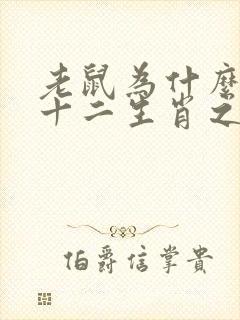 老鼠為什麼
十二生肖之
伯爵信掌貴